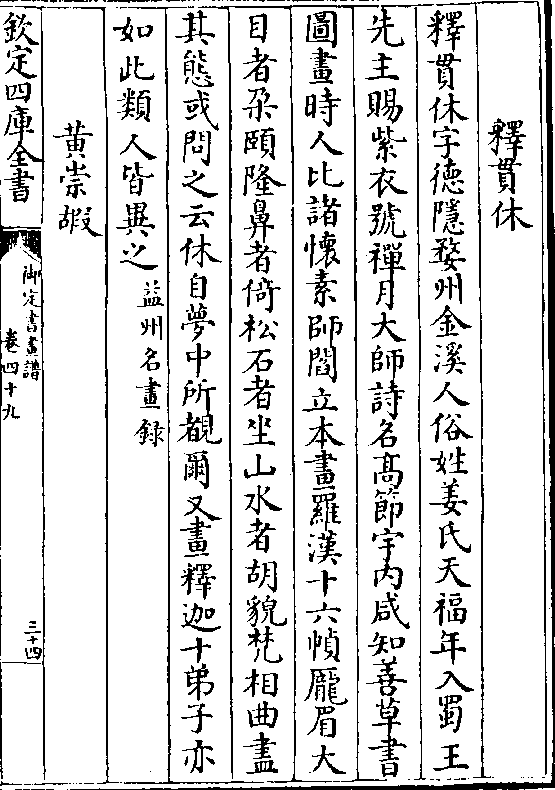 釋貫休
釋貫休字德隱婺州金溪人俗姓姜氏天福年入蜀王
先主賜紫衣號禪月大師詩名髙節宇内咸知善草書
圖畫時人比諸懷素師閻立本畫羅漢十六幀龎眉大
目者朶頤隆鼻者倚松石者坐山水者胡貌梵相曲盡
其態或問之云休自夢中所覩爾又畫釋迦十弟子亦
如此類人皆異之益州名畫録
黄崇嘏
欽定四庫全書
御定書畫譜
卷四十九
三十四